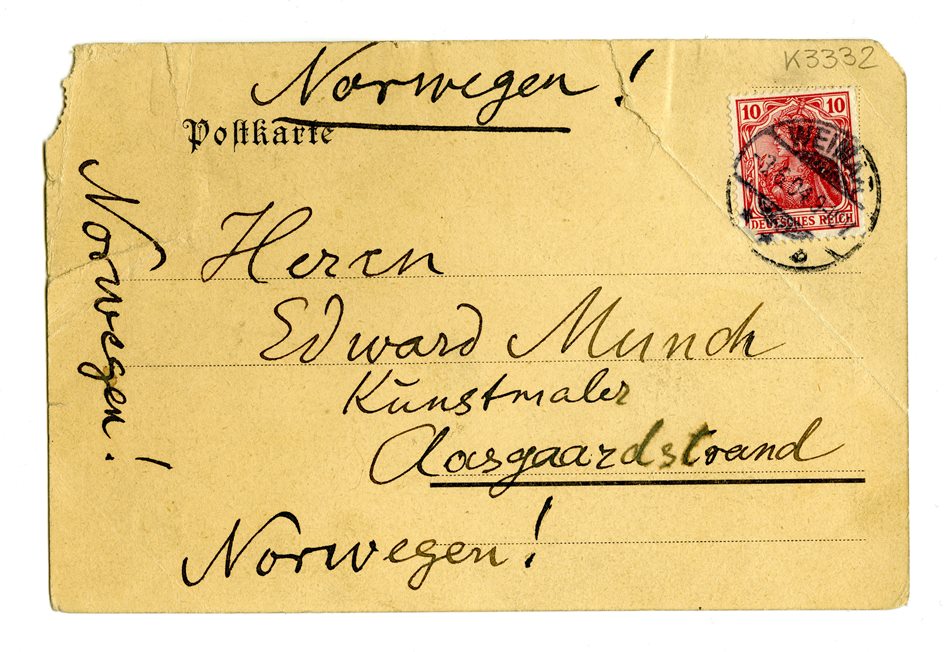 K3332
Norwegen!
Postkarte
10 10
DEUTSCHES REICH
WEIMAR
Herrn
Edward Munch
Kunstmaler
Aasgaardstrand
Norwegen!
Norwegen!